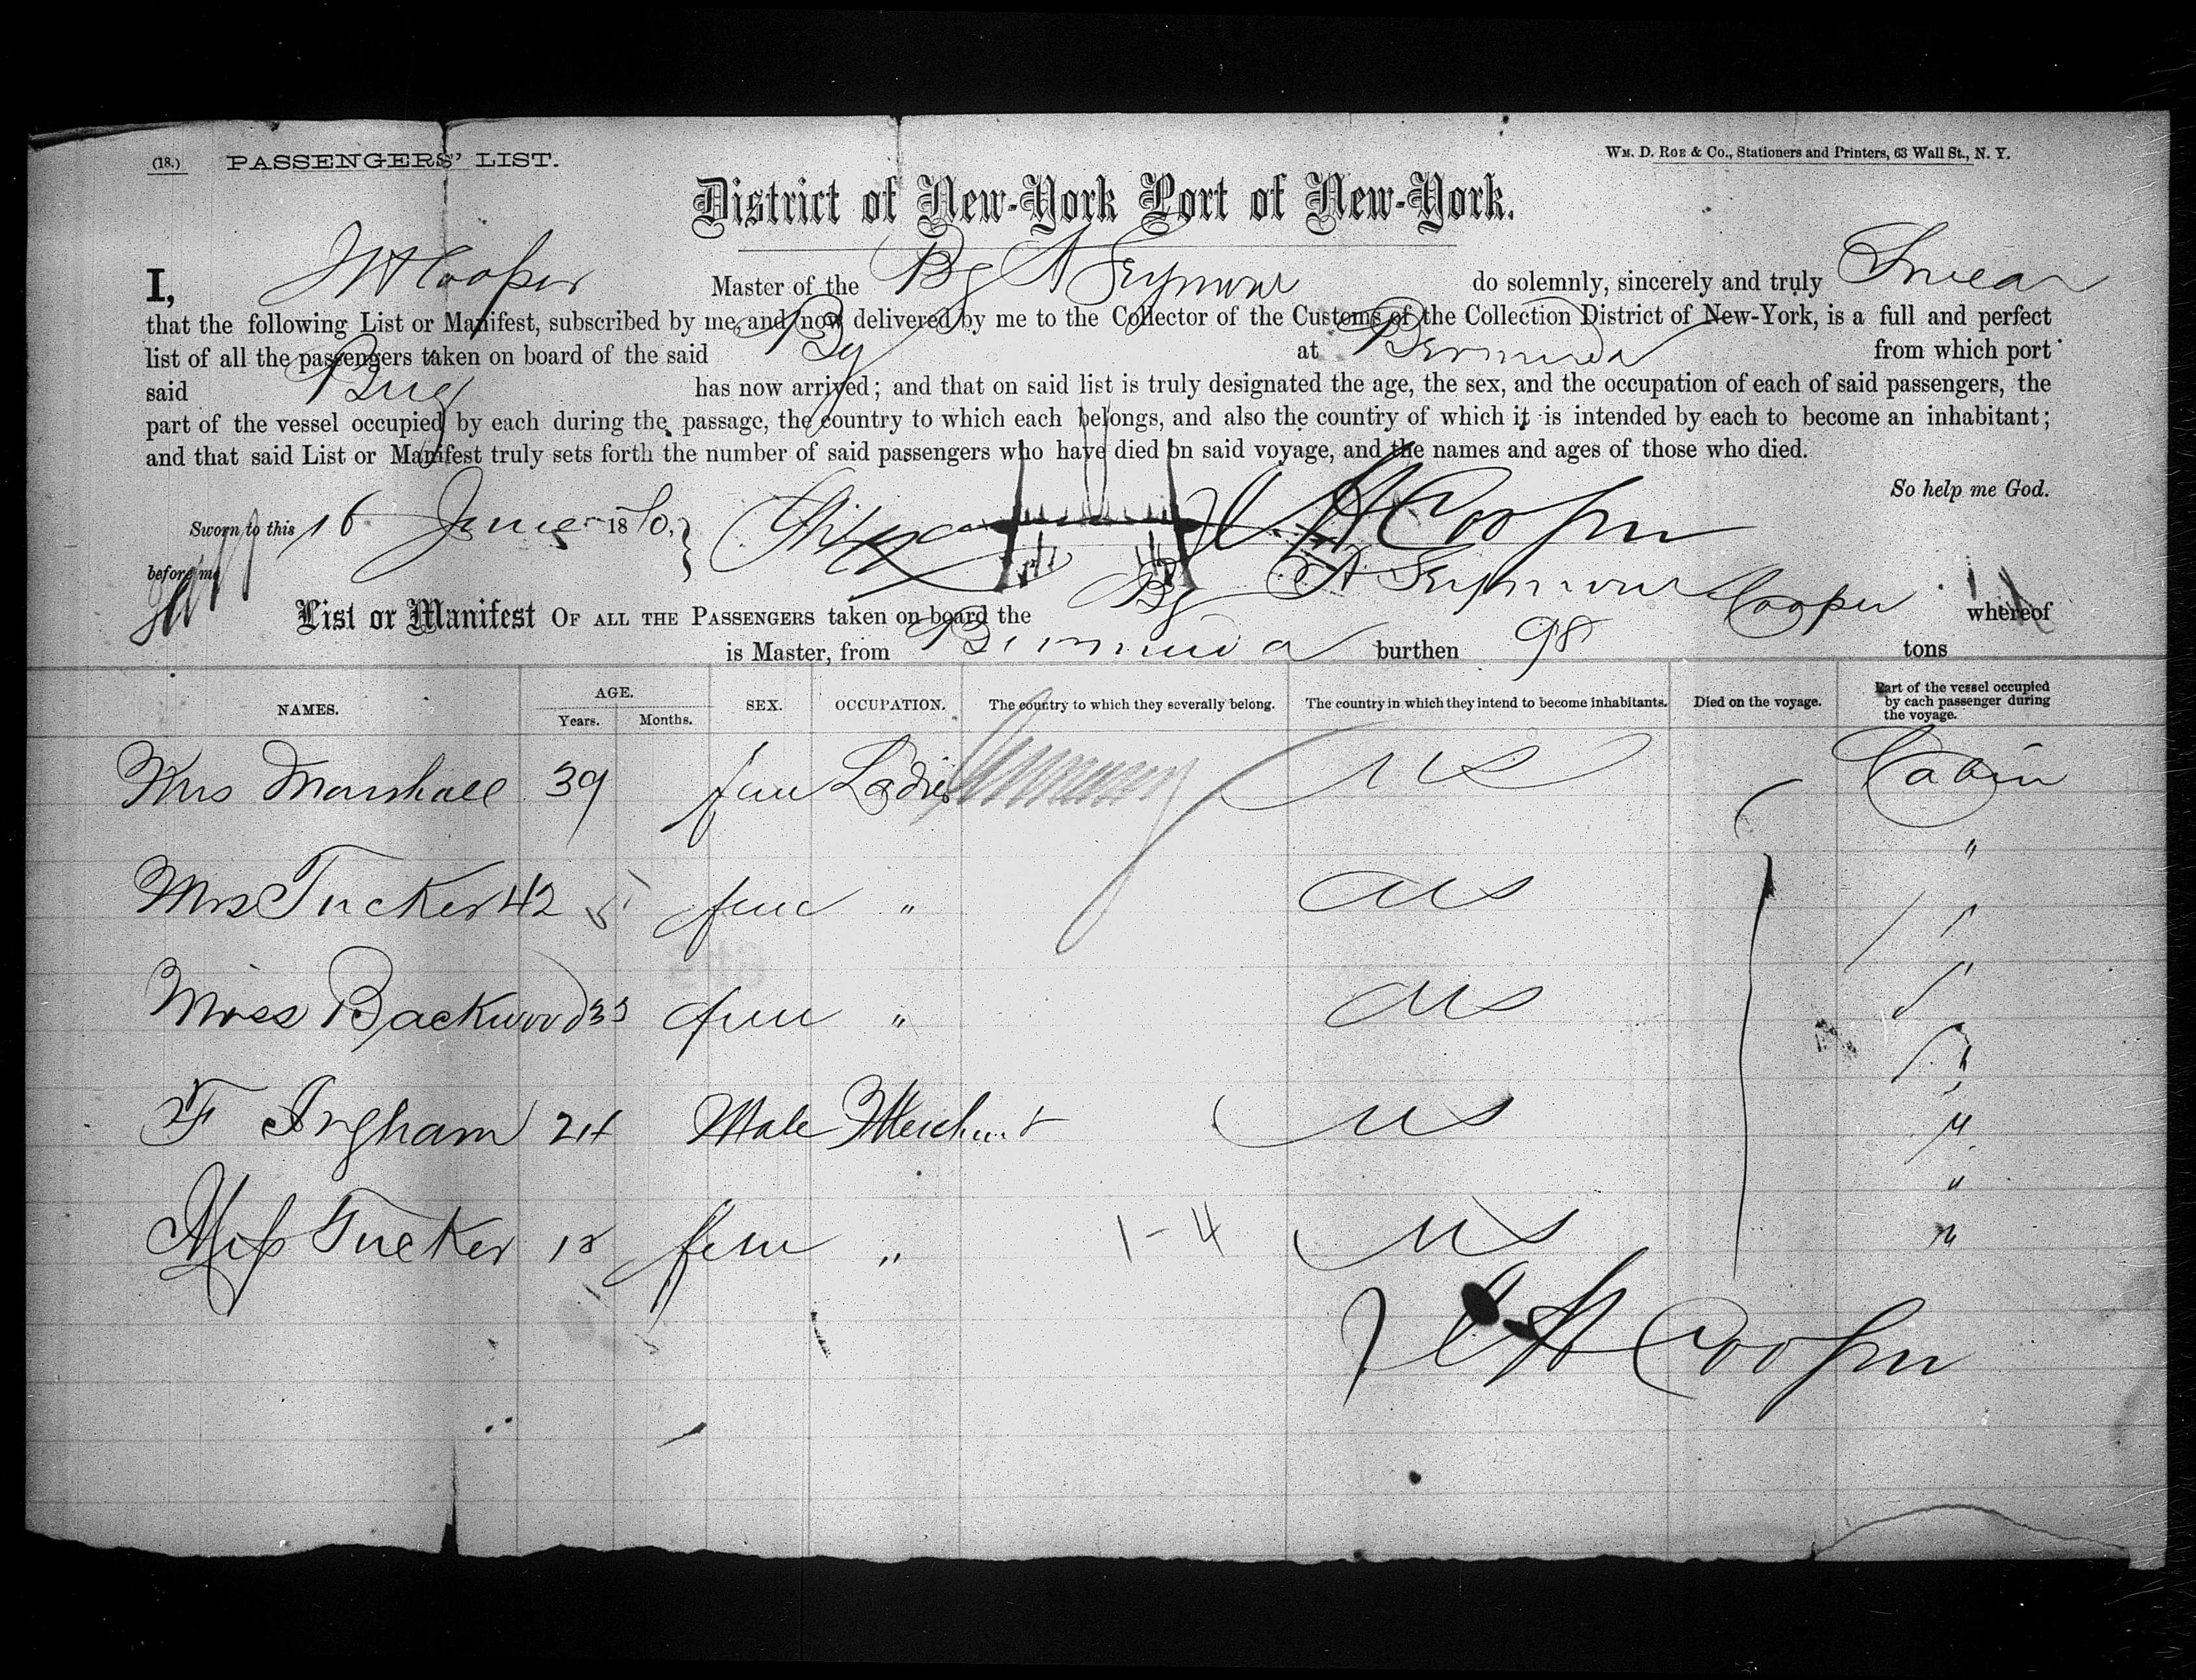 (18.) PASSENGERS' LIST. WM. D. ROE & CO., Stationers and Printers, 63 Wall St., N. Y.
District of New-York Port of New-York.
I, Cooper Master of the Bg A Seymour do solemnly, sincerely and truly Swear
that the following List or Manifest, subscribed by me, and now delivered by me to the Collector of the Customs of the Collection District of New-York, is a full and perfect
list of all the passengers taken on board of the said Bg at Bermuda from which port
said Brig has now arrived; and that on said list is truly designated the age, the sex, and the occupation of each of said passengers, the
part of the vessel occupied by each during the passage, the country to which each belongs, and also the country of which it is intended by each to become an inhabitant;
and that said List or Manifest truly sets forth the number of said passengers who have died on said voyage, and the names and ages of those who died.
So help me God.
Sworn to this 16 June 18 Cooper
before me
List or Manifest OF ALL THE PASSENGERS taken on board the Bg A Seymour Cooper whereof
is Master, from Bermuda burthen 98 tons
NAMES. AGE. Years. Months. SEX. OCCUPATION. The country to which they severally belong. The country in which they intend to become inhabitants. Died on the voyage. Part of the vessel occupied by each passenger during the voyage.
Mrs Marshall 39 fem Ladies US Cabin
Mrs Tucker 42 fem " US "
Miss Backwood 33 fem " US
F Ingham 24 Male Merchant US "
Miss Tucker 18 fem " 1-4 US "
Cooper